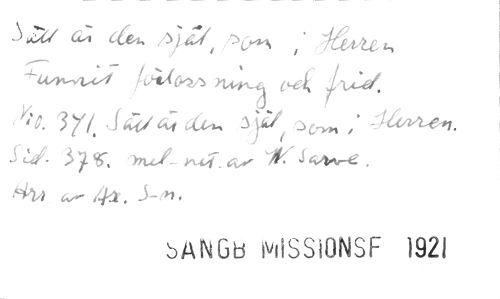 Säll är den själ, som i Herren
Funnit förlossning och frid.
N:o. 371. Säll är den själ, som i Herren.
Sid. 378. mel. not. av W. Sarve.
Arr av Ax. S-n.
SANGB MISSIONSF 1921